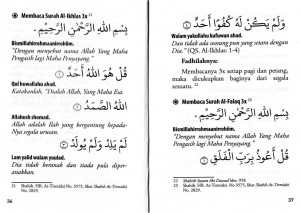 Membaca Surah Al-Ikhlas 3x 21
بِسْمِ اللَّهِ الرَّحْمَنِ الرَّحِيمِ
Bismillahirrohmaanirrohiim.
"Dengan menyebut nama Allah Yang Maha
Pengasih lagi Maha Penyayang."
قُلْ هُوَ اللَّهُ أَحَدٌ
Qul huwallahu ahad.
Katakanlah, "Dialah Allah, Yang Maha Esa.
اللَّهُ الصَّمَدُ
Allahush shomad.
Allah adalah Ilah yang bergantung kepada-
Nya segala urusan.
لَمْ يَلِدْ وَلَمْ يُولَدْ
Lam yalid walam yuulad.
Dia tidak beranak dan tiada pula diper-
anakkan.
36
وَلَمْ يَكُنْ لَهُ كُفُوًا أَحَدٌ
Walam yakullahu kufuwan ahad.
Dan tidak ada seorang pun yang setara dengan
Dia." (QS. Al-Ikhlas: 1-4)
Fadhilahnya:
Membacanya 3x setiap pagi dan petang,
maka dicukupkan baginya dari segala
sesuatu.
Membaca Surah Al-Falaq 3x
بِسْمِ اللَّهِ الرَّحْمَنِ الرَّحِيمِ
Bismillahirrohmaanirrohiim.
"Dengan menyebut nama Allah Yang Maha
Pengasih lagi Maha Penyayang."
قُلْ أَعُوذُ بِرَبِّ الْفَلَقِ
37